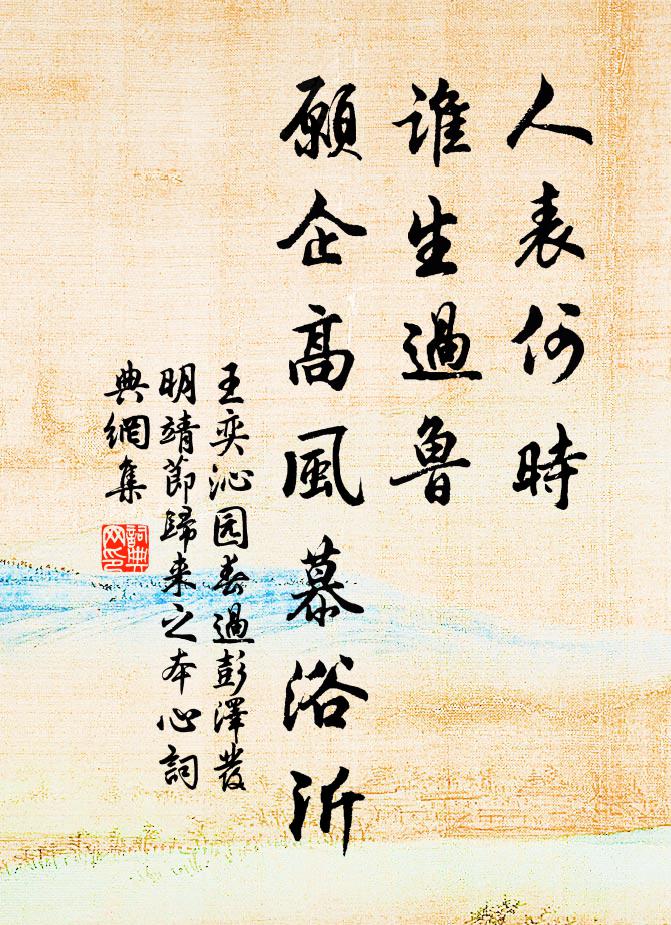 人表何時
誰生過魯
願企高風慕浴沂
王奕沁园春過彭澤發
明靖節歸来之本心詞
典網集
詞典
网印